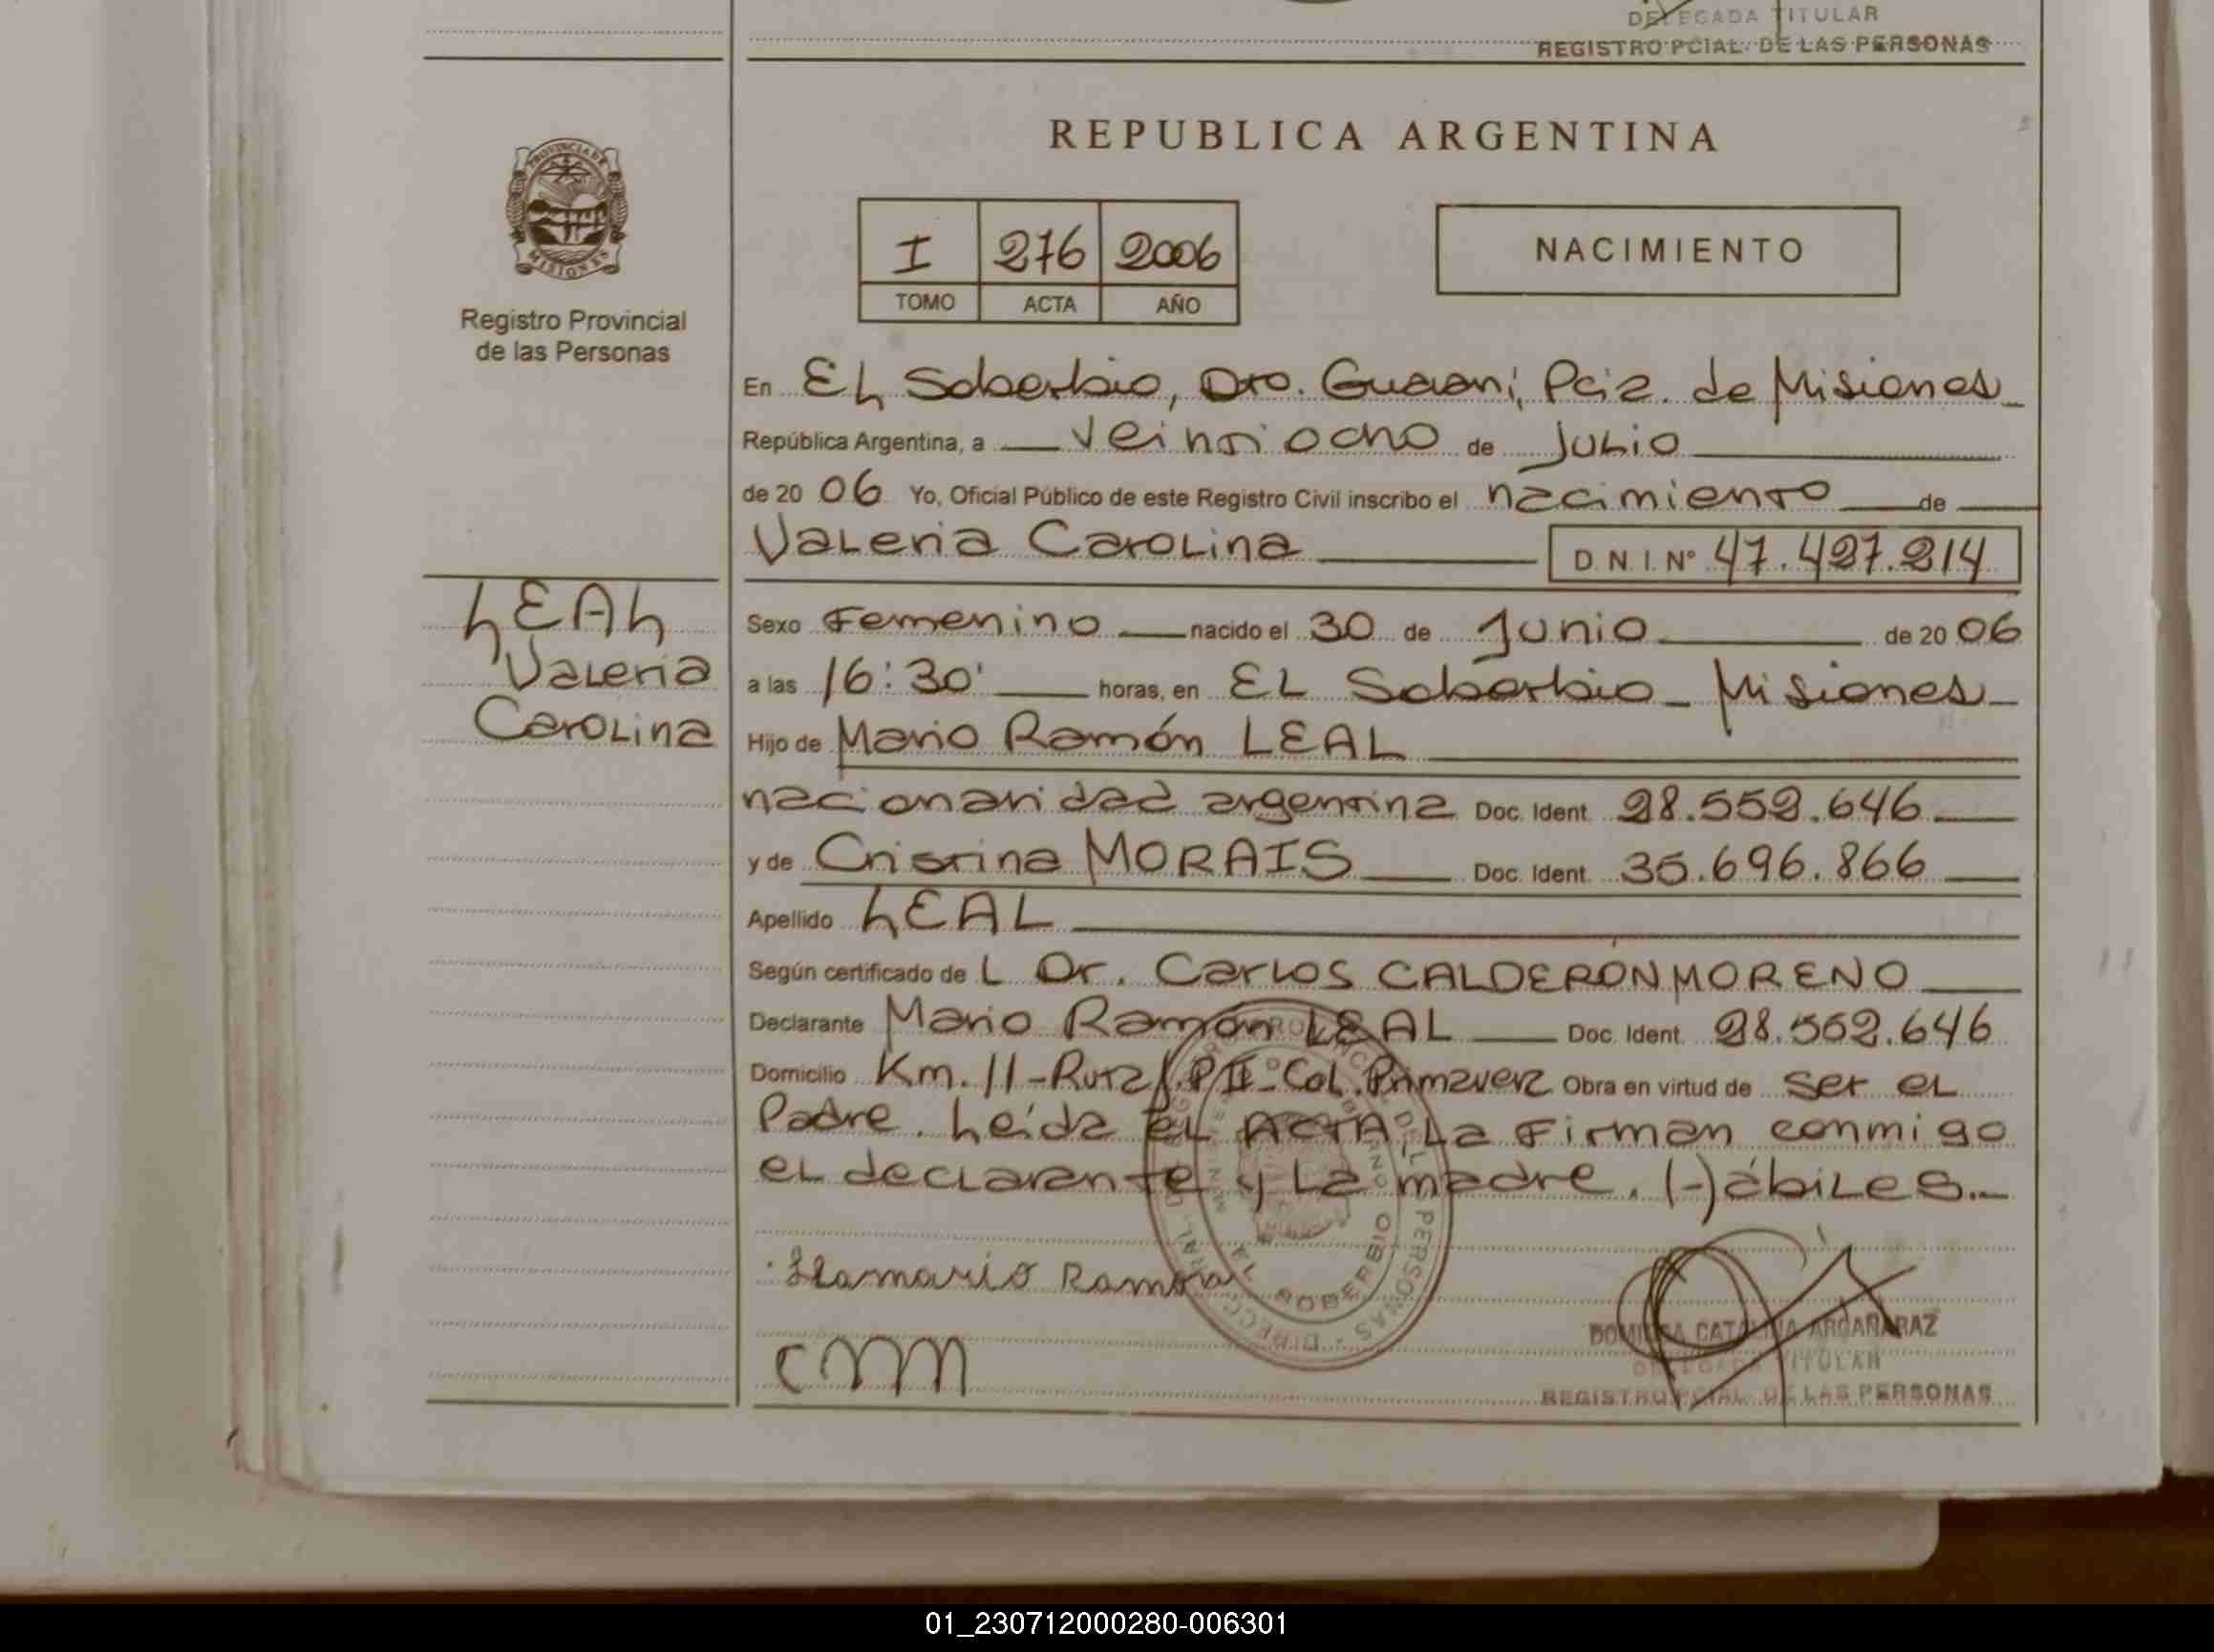 DELEGADA TITULAR
REGISTRO PCIAL. DE LAS PERSONAS
REPUBLICA ARGENTINA
PROVINCIA DE
MISIONES
Registro Provincial
de las Personas
I 276 2006
TOMO ACTA AÑO
NACIMIENTO
En EL Soberbio, Dto. Guaraní, Pcia. de Misiones
República Argentina, a veintiocho de Julio
de 20 06 Yo, Oficial Público de este Registro Civil inscribo el nacimiento de
Valeria Carolina D.N.I. Nº 47.427.214
LEAL
Valeria
Carolina
Sexo Femenino nacido el 30 de Junio de 20 06
a las 16:30' horas, en EL Soberbio - Misiones
Hijo de Mario Ramón LEAL
nacionalidad argentina Doc. Ident. 28.552.646
y de Cristina MORAIS Doc. Ident. 35.696.866
Apellido LEAL
Según certificado de L Dr. Carlos CALDERON MORENO
Declarante Mario Ramón LEAL Doc. Ident. 28.552.646
Domicilio Km. 11 - Ruta P Col. Primavera Obra en virtud de ser el
Padre. Leída el ACTA, La Firman conmigo
el declarante y La madre. Hábiles.-
EL SOBERBIO
Ramon
cmm
CATALINA ARGAÑARAZ
DELEGADA TITULAR
REGISTRO PCIAL. DE LAS PERSONAS
01_230712000280-006301